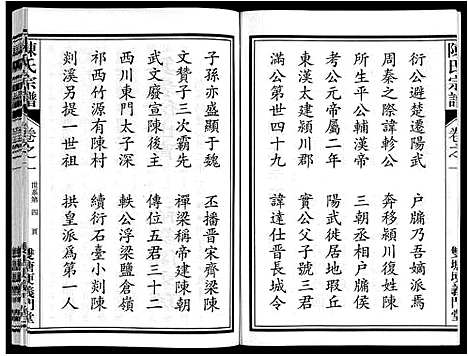 陳氏宗譜
卷之一
雙塘埂義門堂
衍公避楚遷陽武　戶牖乃吾嫡派焉
周秦之際諱軫公　奔移潁川復姓陳
所生平公輔漢帝　三朝丞相戶牖侯
考公元帝屬二年　陽武徙居地瑕丘
東漢太建潁川郡　寔公父子號三君
滿公第世四十九　諱達公晉長城令
子孫亦盛顯于魏　丕播晋宋齊梁陳
文贊子三次霸先　禪梁稱帝建陳朝
武文廢宣陳後主　傳位五君三十二
西川東門太子深　軼公浮梁鹽倉嶺
祁西竹源有陳村　續衍石臺小剡陳
剡溪另提一世祖　拱皇派為第一人
陳氏宗譜
卷之一
世系第　四　頁
雙塘埂義門堂